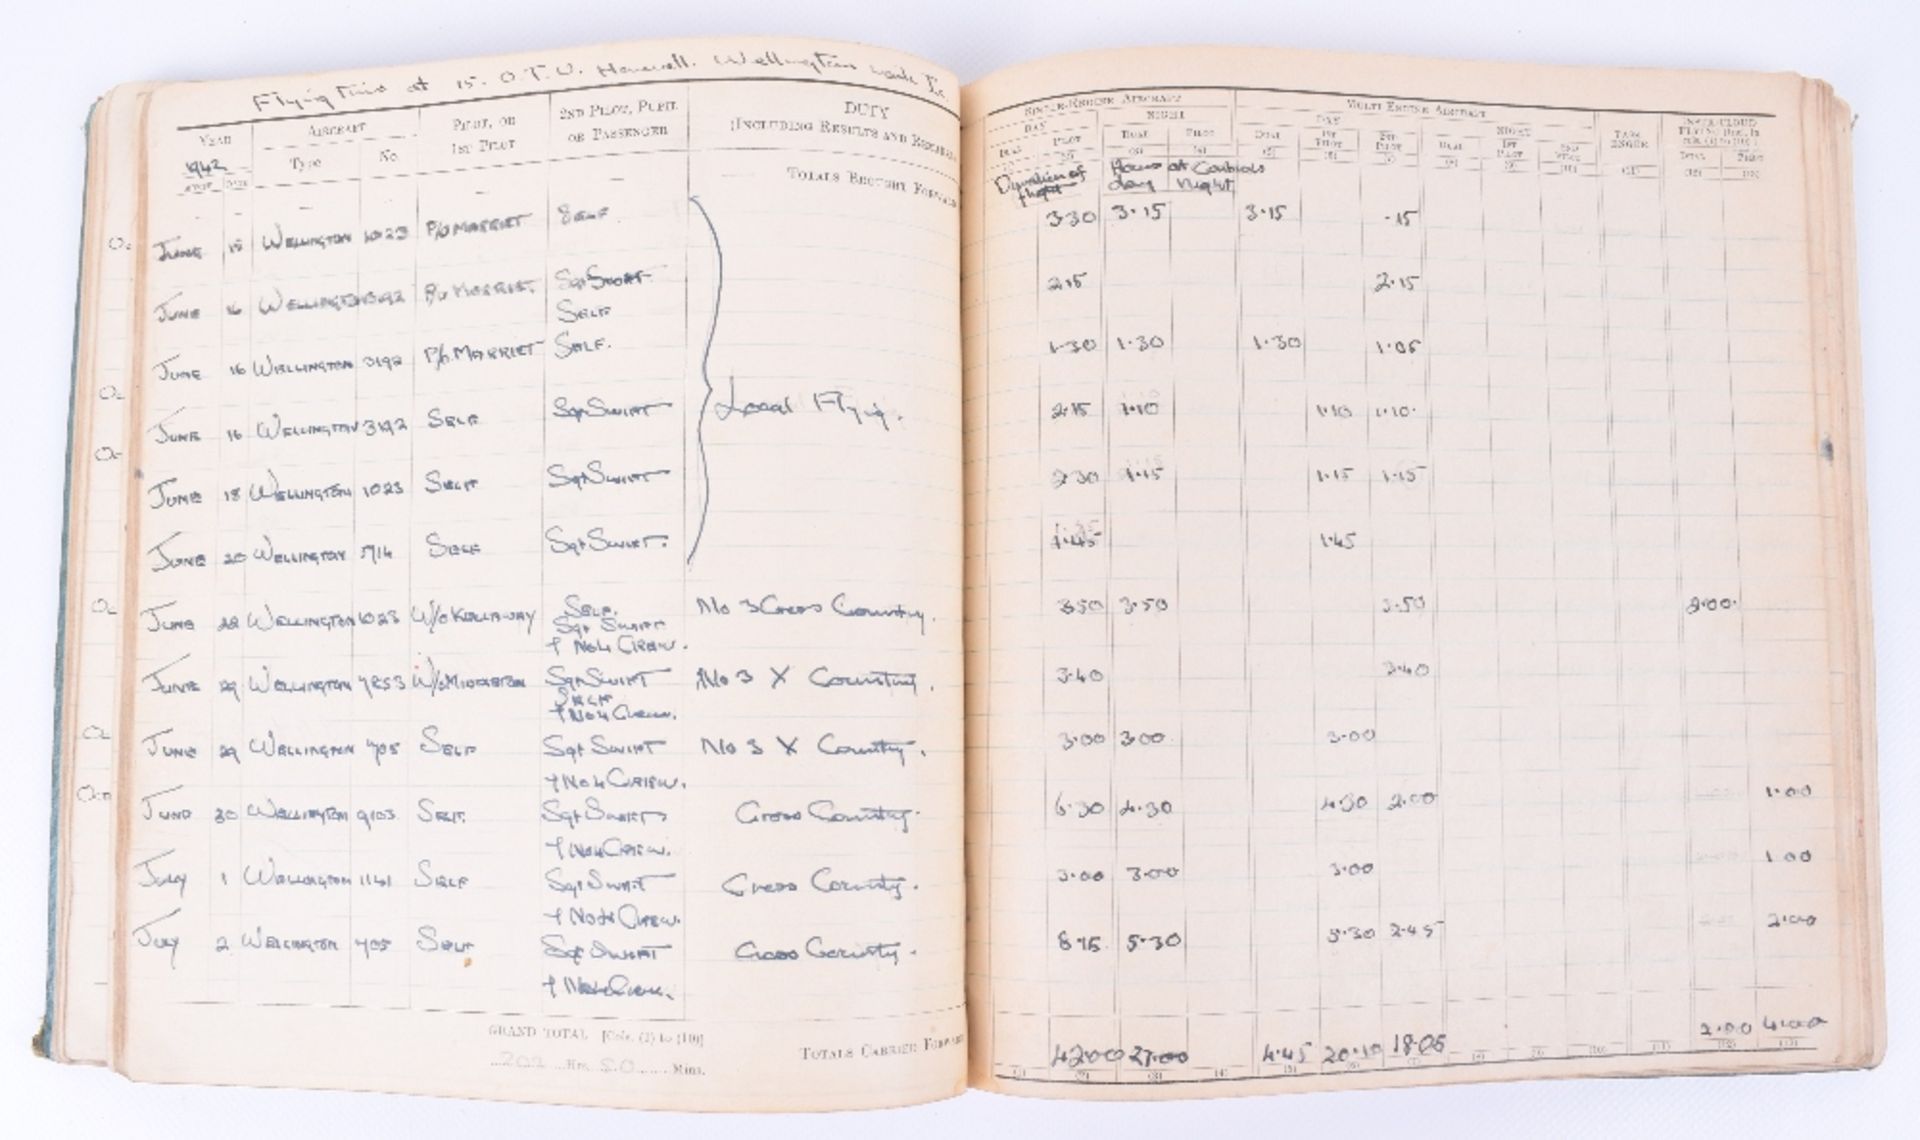 Flying Time at 15. O.T.U. Harwell. Wellington Mark
YEAR AIRCRAFT PILOT, OR 1ST PILOT 2ND PILOT, PUPIL OR PASSENGER DUTY (INCLUDING RESULTS AND REMARKS
1942 MONTH DATE Type No.
TOTALS BROUGHT FORWARD
JUNE 15 WELLINGTON 1023 P/O MARRIET SELF
JUNE 16 WELLINGTON 3192 P/O MARRIET. Sgt SWIFT
SELF
JUNE 16 WELLINGTON 3192 P/O. MARRIET SELF.
JUNE 16 WELLINGTON 3192 SELF Sgt SWIFT Local Flying.
JUNE 18 WELLINGTON 1023 SELF Sgt SWIFT
JUNE 20 WELLINGTON 5714 SELF Sgt SWIFT.
JUNE 22 WELLINGTON 1023 W/O KELLAWAY SELF. No 3 Cross Country.
Sgt SWIFT
+ No 4 CREW.
JUNE 29 WELLINGTON 7253 Sgt SWIFT No 3 X Country.
SELF
+ No 4 CREW.
JUNE 29 WELLINGTON 705 SELF Sgt SWIFT No 3 X Country.
+ No 4 CREW.
JUNE 30 WELLINGTON 9103 SELF. Sgt SWIFT Cross Country.
+ No 4 CREW.
JULY 1 WELLINGTON 1141 SELF Sgt SWIFT Cross Country.
+ No 4 CREW.
JULY 2 WELLINGTON 705 SELF Sgt SWIFT Cross Country.
+ No 4 CREW.
GRAND TOTAL [Cols. (1) to (10)]
202 Hrs. 50 Mins.
TOTALS CARRIED FORWARD
SINGLE-ENGINE AIRCRAFT MULTI-ENGINE AIRCRAFT PASSENGER INSTR/CLOUD FLYING [Incl. in
DAY NIGHT DAY NIGHT
DUAL PILOT DUAL PILOT DUAL 1ST PILOT 2ND PILOT DUAL 1ST PILOT 2ND PILOT DUAL PILOT
(2) (3) (4) (5) (6) (7) (8) (9) (10) (11) (12) (13)
Duration of flight Hours at Controls
day night
3.30 3.15 3.15 .15
2.15 2.15
1.30 1.30 1.30 1.05
2.15 1.10 1.10 1.10.
2.30 1.15 1.15 1.15
1.45 1.45
3.50 3.50 3.50 2.00.
3.40 3.40
3.00 3.00 3.00
6.30 4.30 4.30 2.00 1.00
3.00 3.00 3.00 1.00
8.15 5.30 5.30 2.45 2.00
42.00 27.00 4.45 20.10 18.05 2.00 4.00
(1) (2) (3) (4) (5) (6) (7) (8) (9) (10) (11) (12) (13)